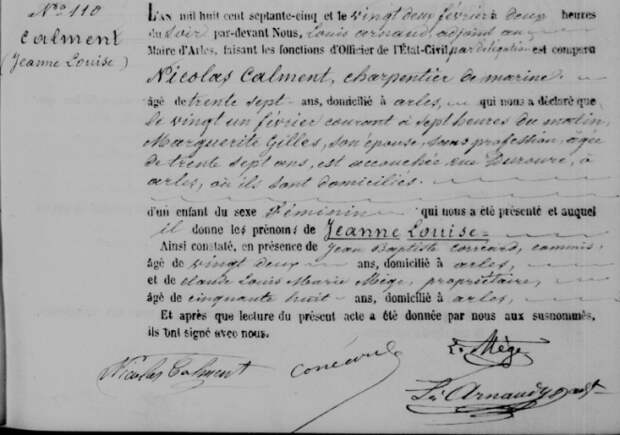 N° 110
Calment
(Jeanne Louise)
L'AN mil huit cent septante-cinq et le vingt deux février à deux heures
du soir par-devant Nous, Louis Arnaud, adjoint au
Maire d'Arles, faisant les fonctions d'Officier de l'Etat-Civil par délégation est comparu
Nicolas Calment, charpentier de marine
âgé de trente sept ans, domicilié à arles, qui nous a déclaré que
le vingt un février courant à sept heures du matin,
Marguerite Gilles, son épouse, sans profession, âgée
de trente sept ans, est accouchée rue Duroure, à
arles, où ils sont domiciliés.
d'un enfant du sexe féminin qui nous a été présenté et auquel
il donne les prénoms de Jeanne Louise
Ainsi constaté, en présence de Jean Baptiste correard, commis
âgé de vingt deux ans, domicilié à arles,
et de claude Louis Marie Mège, propriétaire,
âgé de cinquante huit ans, domicilié à arles,
Et après que lecture du présent acte a été donnée par nous aux susnommés,
ils ont signé avec nous.
L. Mège
Nicolas Calment correard
Ls Arnaud adjt